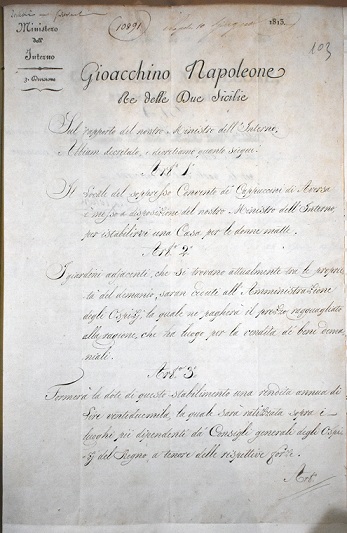 10891
1813.
103
Ministero
dell'
Interno
3ª Divisione
Gioacchino Napoleone
Re delle Due Sicilie
Sul rapporto del nostro Ministro dell'Interno,
Abbiam decretato, e decretiamo quanto siegue.
Art.º 1.
Il locale del soppresso Convento de' Cappuccini di Aversa
è messo a disposizione del nostro Ministro dell'Interno,
per istabilirvi una Casa per le donne matte.
Art.º 2.
I giardini adjacenti, che si trovano attualmente tra le proprie-
tà del demanio, saran ceduti all'Amministrazione
degli Ospizj, la quale ne pagherà il prezzo ragguagliato
alla ragione, che ha luogo per la vendita de' beni dema-
niali.
Art.º 3.
Formerà la dote di questo stabilimento una rendita annua di
Lire ventiduemila, la quale sarà ratizzata sopra i
luoghi pii dipendenti da' Consigli generali degli Ospi-
zj del Regno a tenore delle respettive forze.
Art.